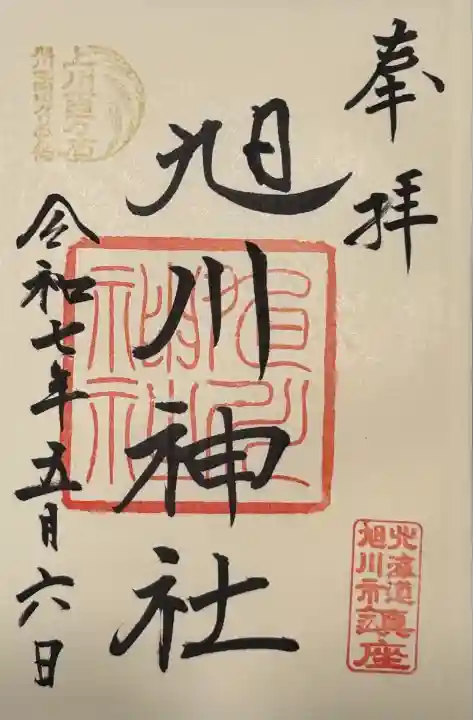 奉拝
旭川神社
令和七年五月六日
旭川神社
北海道
旭川市鎮座
上川百万石